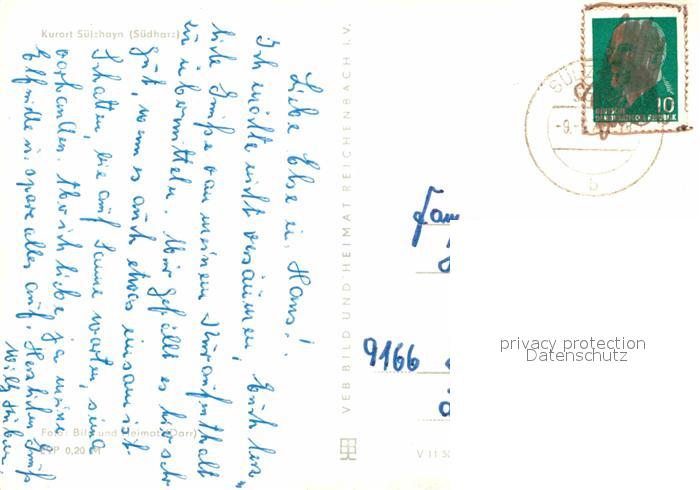 Kurort Sülzhayn (Südharz)
Liebe Else u. Hans!
Ich möchte nicht versäumen, Euch herz-
liche Grüße von meinem Kuraufenthalt
zu übermitteln. Mir gefällt es hier sehr
gut, wenn es auch etwas einsam ist.
Schatten, die auf Sonne warten, sind
vorhanden. Aber ich liebe ja meine
u. spare alles auf. Herzlichen Gruß
Willy
Foto: Bild und Heimat (Darr)
EVP 0,20 M
VEB BILD UND HEIMAT REICHENBACH I. V.
V 11 50
SÜLZ
-9.-
b
10
DEUTSCHE
DEMOKRATISCHE REPUBLIK
Fam
9166
privacy protection
Datenschutz